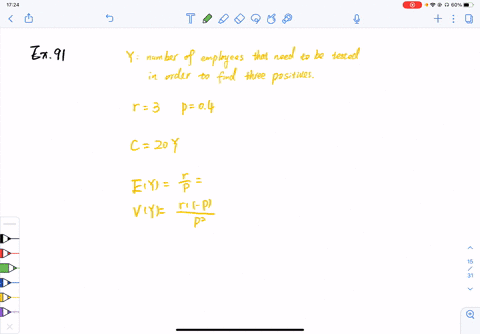 17:24
60%
Ex.91
Y: number of employees that need to be tested
in order to find three positives.
r=3 p=0.4
C=20Y
E(Y)= r/p =
V(Y)= r(1-p)/p²
15
/
31